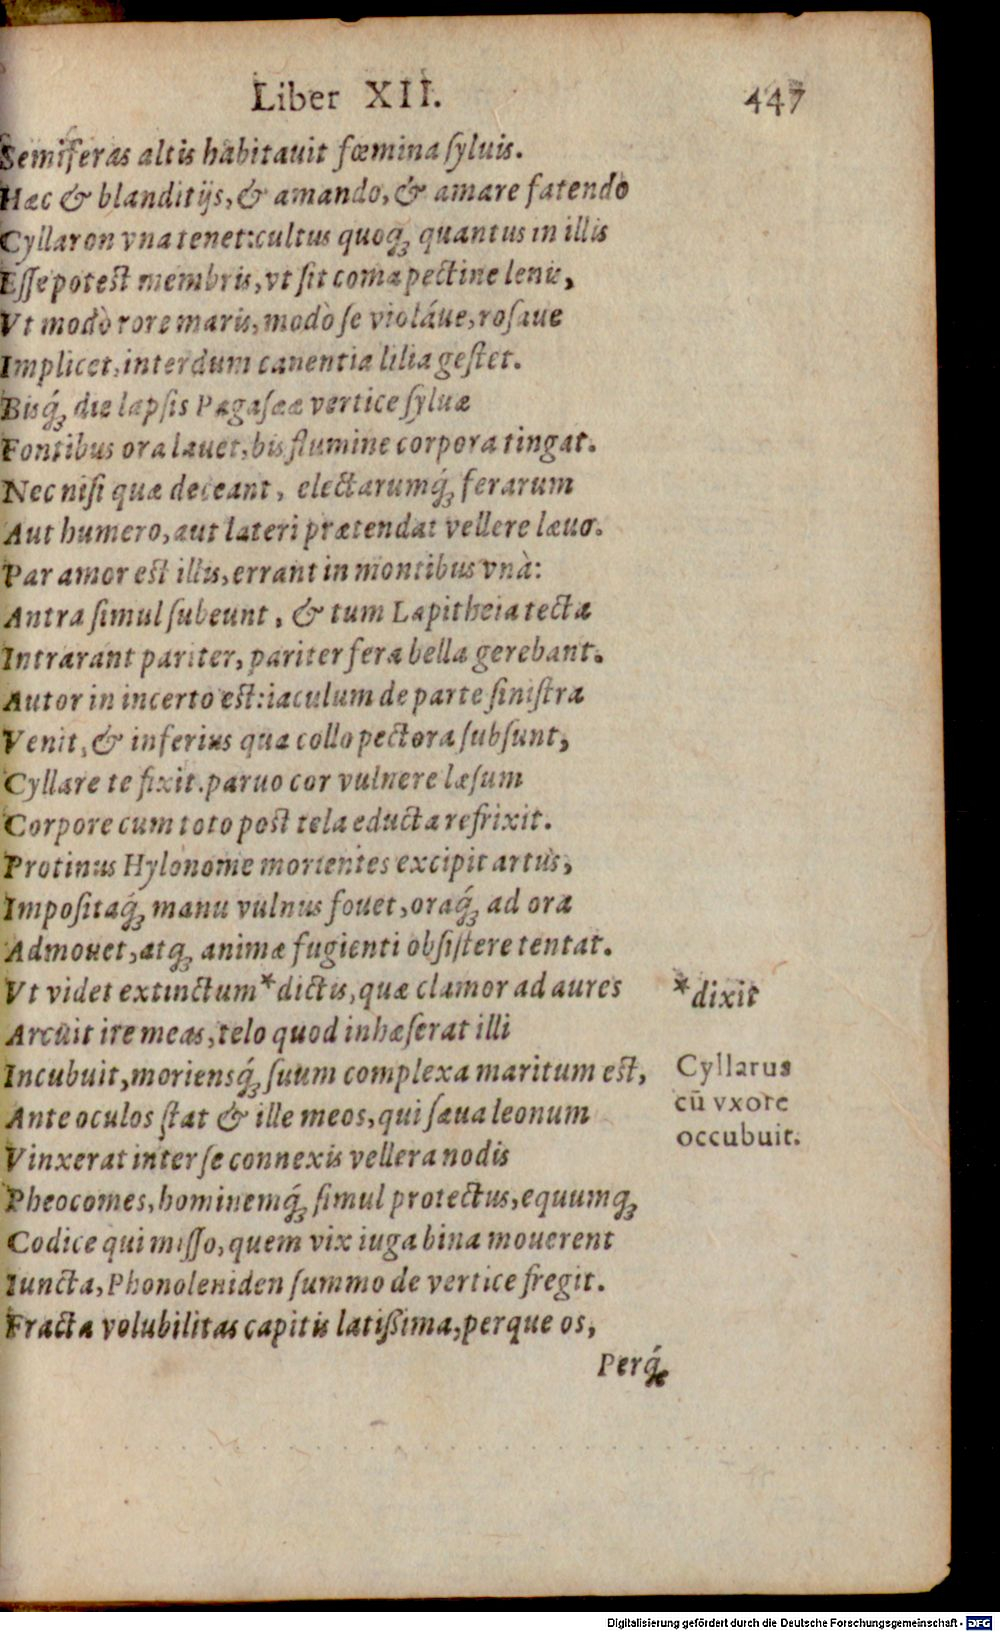 Liber XII. 447
Semiferas altis habitauit fœmina ſyluis.
Hæc & blanditijs, & amando, & amare fatendo
Cyllaron vna tenet: cultus quoq; quantus in illis
Eſſe potest membris, vt ſit coma pectine leuis,
Vt modò rore maris, modò ſe violáue, roſaue
Implicet, interdum canentia lilia geſtet.
Bisq́; die lapſis Pagaſææ vertice ſyluæ
Fontibus ora lauet, bis flumine corpora tingat.
Nec niſi quæ deceant, electarumq́; ferarum
Aut humero, aut lateri prætendat vellere læuo.
Par amor est illis, errant in montibus vnà:
Antra ſimul ſubeunt, & tum Lapitheia tecta
Intrarant pariter, pariter fera bella gerebant.
Autor in incerto est: iaculum de parte ſiniſtra
Venit, & inferius qua collo pectora ſubſunt,
Cyllare te fixit. paruo cor vulnere læſum
Corpore cum toto post tela educta refrixit.
Protinus Hylonome morientes excipit artus,
Impoſitaq́; manu vulnus fouet, oraq́; ad ora
Admouet, atq; animæ fugienti obſiſtere tentat.
Vt videt extinctum * dictis, quæ clamor ad aures
* dixit
Arcuit ire meas, telo quod inhæſerat illi
Incubuit, moriensq́; ſuum complexa maritum est,
Cyllarus
cū vxore
occubuit.
Ante oculos ſtat & ille meos, qui ſæua leonum
Vinxerat inter ſe connexis vellera nodis
Pheocomes, hominemq́; ſimul protectus, equumq;
Codice qui miſſo, quem vix iuga bina mouerent
Iuncta, Phonoleniden ſummo de vertice fregit.
Fracta volubilitas capitis latiſsima, perque os,
Perq́;
Digitalisierung gefördert durch die Deutsche Forschungsgemeinschaft - DFG